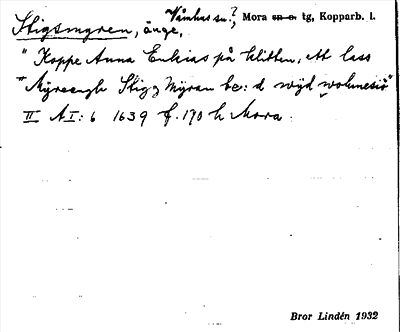 Stigsmyren, änge, Våmhus sn.?, Mora sn o. tg, Kopparb. l.
" Koppe Anna Erikias på klitten, ett lass
" Myreengh Stigz Myran be:d wijd wohnesiö"
II A I: 6 1639 f. 170 h Mora.
Bror Lindén 1932